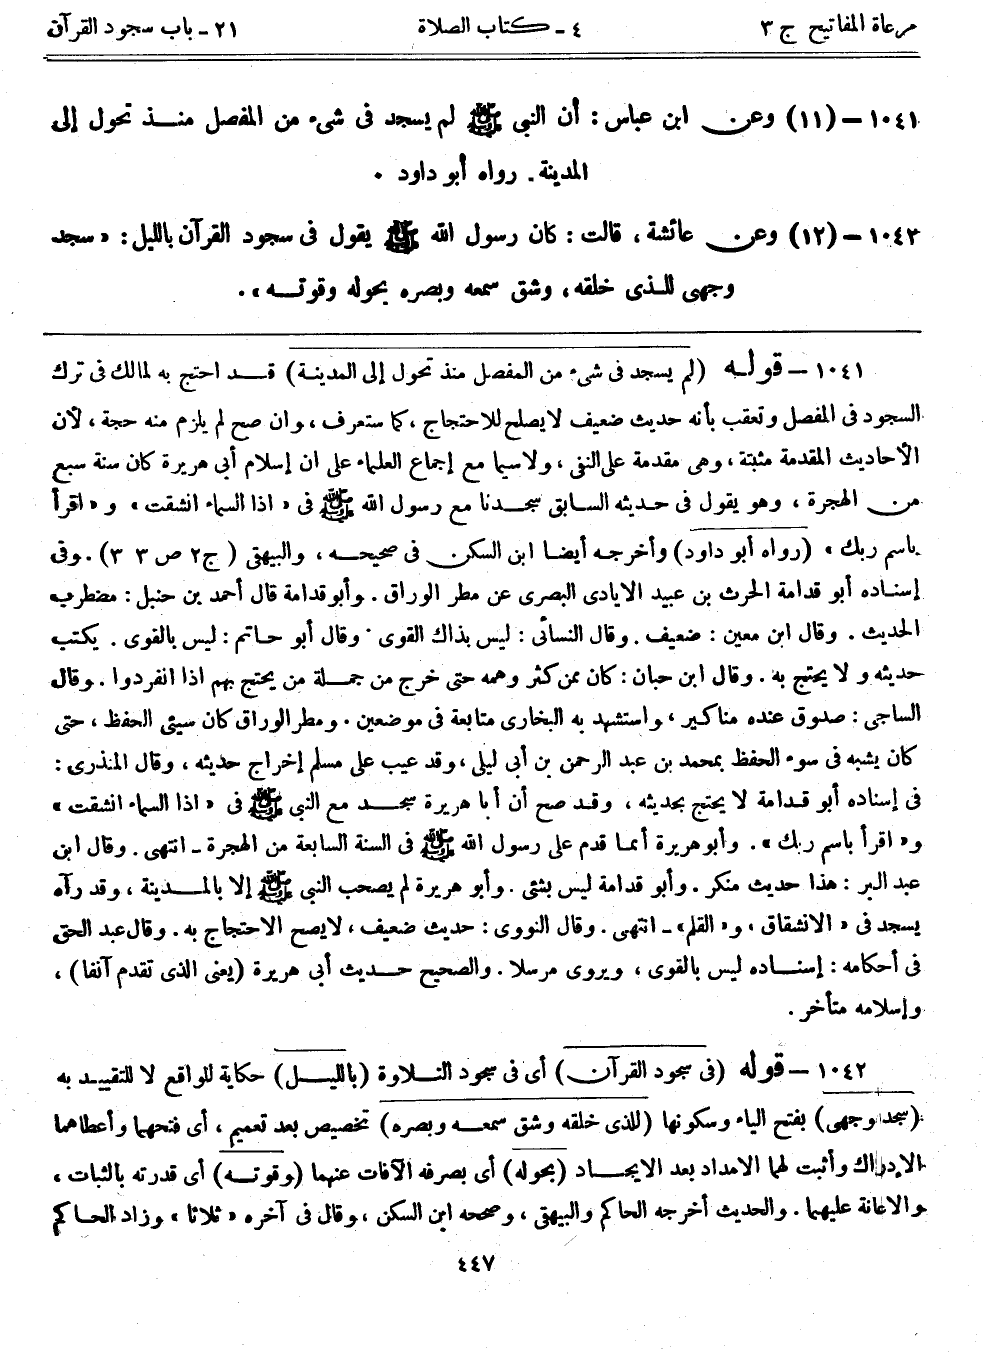 مرعاة المفاتيح ج ٣ ٤ ـ كتاب الصلاة ٢١ ـ باب سجود القرآن
١٠٤١ – (١١) وعن ابن عباس : أن النبي ﷺ لم يسجد فى شىء من المفصل منذ تحول إلى
المدينة . رواه أبو داود .
١٠٤٣ – (١٢) وعن عائشة ، قالت : كان رسول الله ﷺ يقول فى سجود القرآن بالليل : « سجد
وجهى للذى خلقه ، وشق سمعه وبصره بحوله وقوته » .
١٠٤١ – قوله (لم يسجد فى شىء من المفصل منذ تحول إلى المدينة) قد احتج به لمالك فى ترك
السجود فى المفصل وتعقب بأنه حديث ضعيف لايصلح للاحتجاج ، كما ستعرف ، وان صح لم يلزم منه حجة ، لأن
الأحاديث المقدمة مثبتة ، وهى مقدمة على النفى ، ولاسيما مع إجماع العلماء على ان إسلام أبى هريرة كان سنة سبع
من الهجرة ، وهو يقول فى حديثه السابق سجدنا مع رسول الله ﷺ فى « اذا السماء انشقت » و « اقرأ
باسم ربك » (رواه أبو داود) وأخرجه أيضا ابن السكن فى صحيحه ، والبيهقى ( ج٢ ص ٣ ٣) . وفى
إسناده أبو قدامة الحرث بن عبيد الايادى البصرى عن مطر الوراق . وأبوقدامة قال أحمد بن حنبل : مضطرب
الحديث . وقال ابن معين : ضعيف . وقال النسائى : ليس بذاك القوى . وقال أبو حاتم : ليس بالقوى . يكتب
حديثه و لا يحتج به . وقال ابن حبان : كان ممن كثر وهمه حتى خرج من جملة من يحتج بهم اذا انفردوا . وقال
الساجى : صدوق عنده مناكير ، واستشهد به البخارى متابعة فى موضعين . ومطر الوراق كان سيئى الحفظ ، حتى
كان يشبه فى سوء الحفظ بمحمد بن عبد الرحمن بن أبى ليلى ، وقد عيب على مسلم إخراج حديثه ، وقال المنذرى :
فى إسناده أبو قدامة لا يحتج بحديثه ، وقد صح أن أبا هريرة سجد مع النبى ﷺ فى « اذا السماء انشقت »
و « اقرأ باسم ربك » . وأبوهريرة أنما قدم على رسول الله ﷺ فى السنة السابعة من الهجرة ـ انتهى . وقال ابن
عبد البر : هذا حديث منكر . وأبو قدامة ليس بشئى . وأبو هريرة لم يصحب النبى ﷺ إلا بالمدينة ، وقد رآه
يسجد فى « الانشقاق ، و « القلم» ـ انتهى . وقال النووى : حديث ضعيف ، لايصح الاحتجاج به . وقال عبد الحق
فى أحكامه : إسناده ليس بالقوى ، ويروى مرسلا . والصحيح حديث أبى هريرة (يعنى الذى تقدم آنفا) ،
وإسلامه متأخر .
١٠٤٢ – قوله (فى سجود القرآن) أى فى سجود التلاوة (بالليل) حكاية للواقع لا للتقييد به
(سجد وجهى) بفتح الياء وسكونها (للذى خلقه وشق سمعه وبصره) تخصيص بعد تعميم ، أى فتحهما وأعطاهما
الإدراك وأثبت لهما الامداد بعد الايجاد (بحوله) أى بصرفه الآفات عنهما (وقوته) أى قدرته بالثبات ،
والاعانة عليهما . والحديث أخرجه الحاكم والبيهقى ، وصححه ابن السكن ، وقال فى آخره « ثلاثا » وزاد الحاكم
٤٤٧